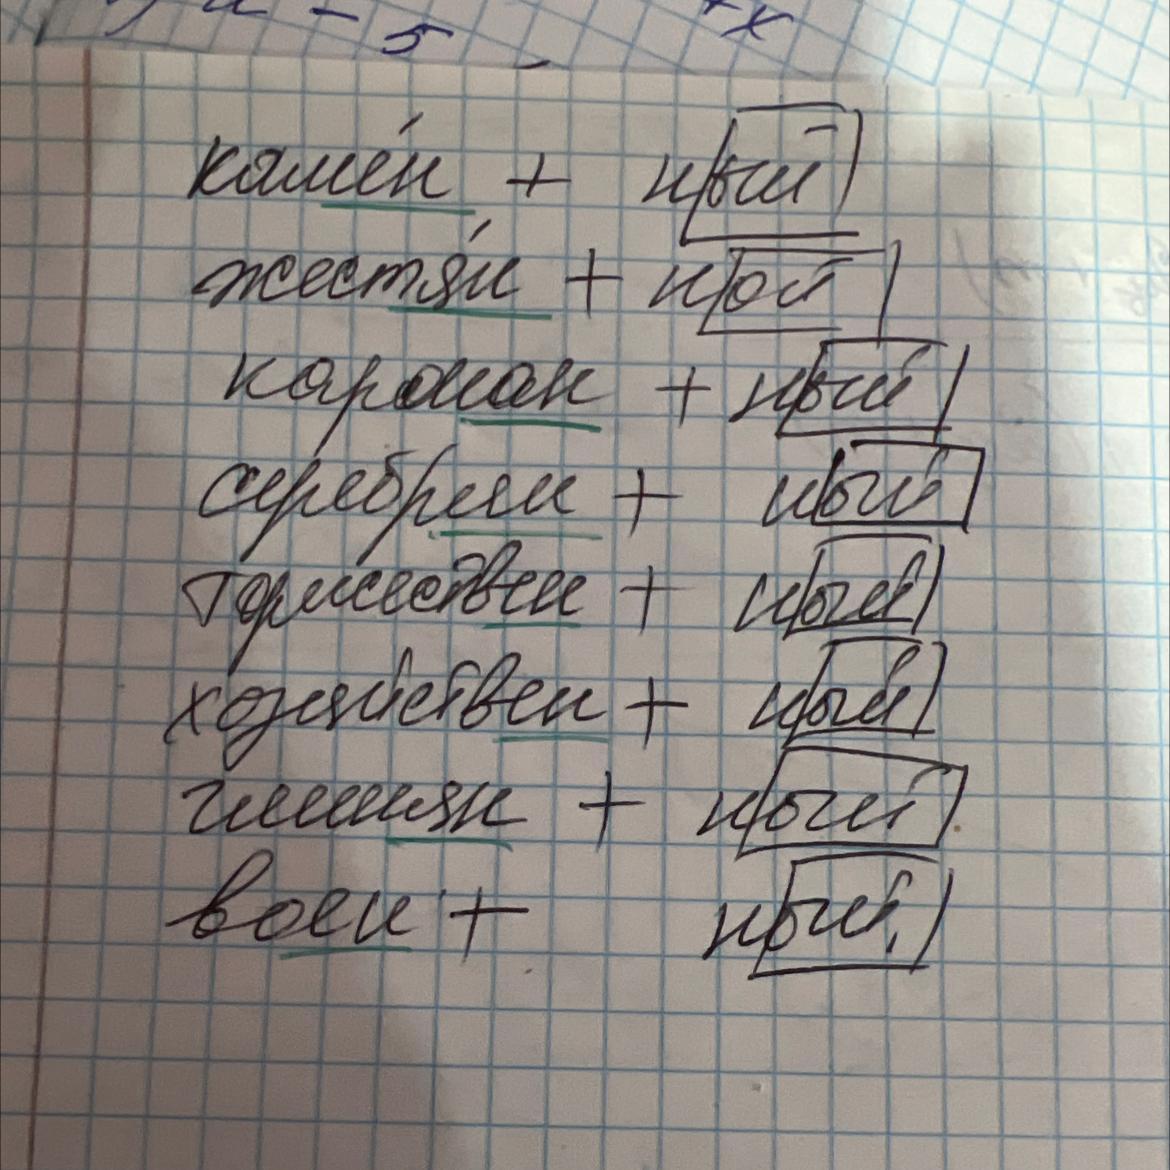 - 5 +x
камéн + ный
жестя́н + ной
карман + ный
серебрян + ный
торжествен + ный
хозяйствен + ный
глинян + ный
воен + ный